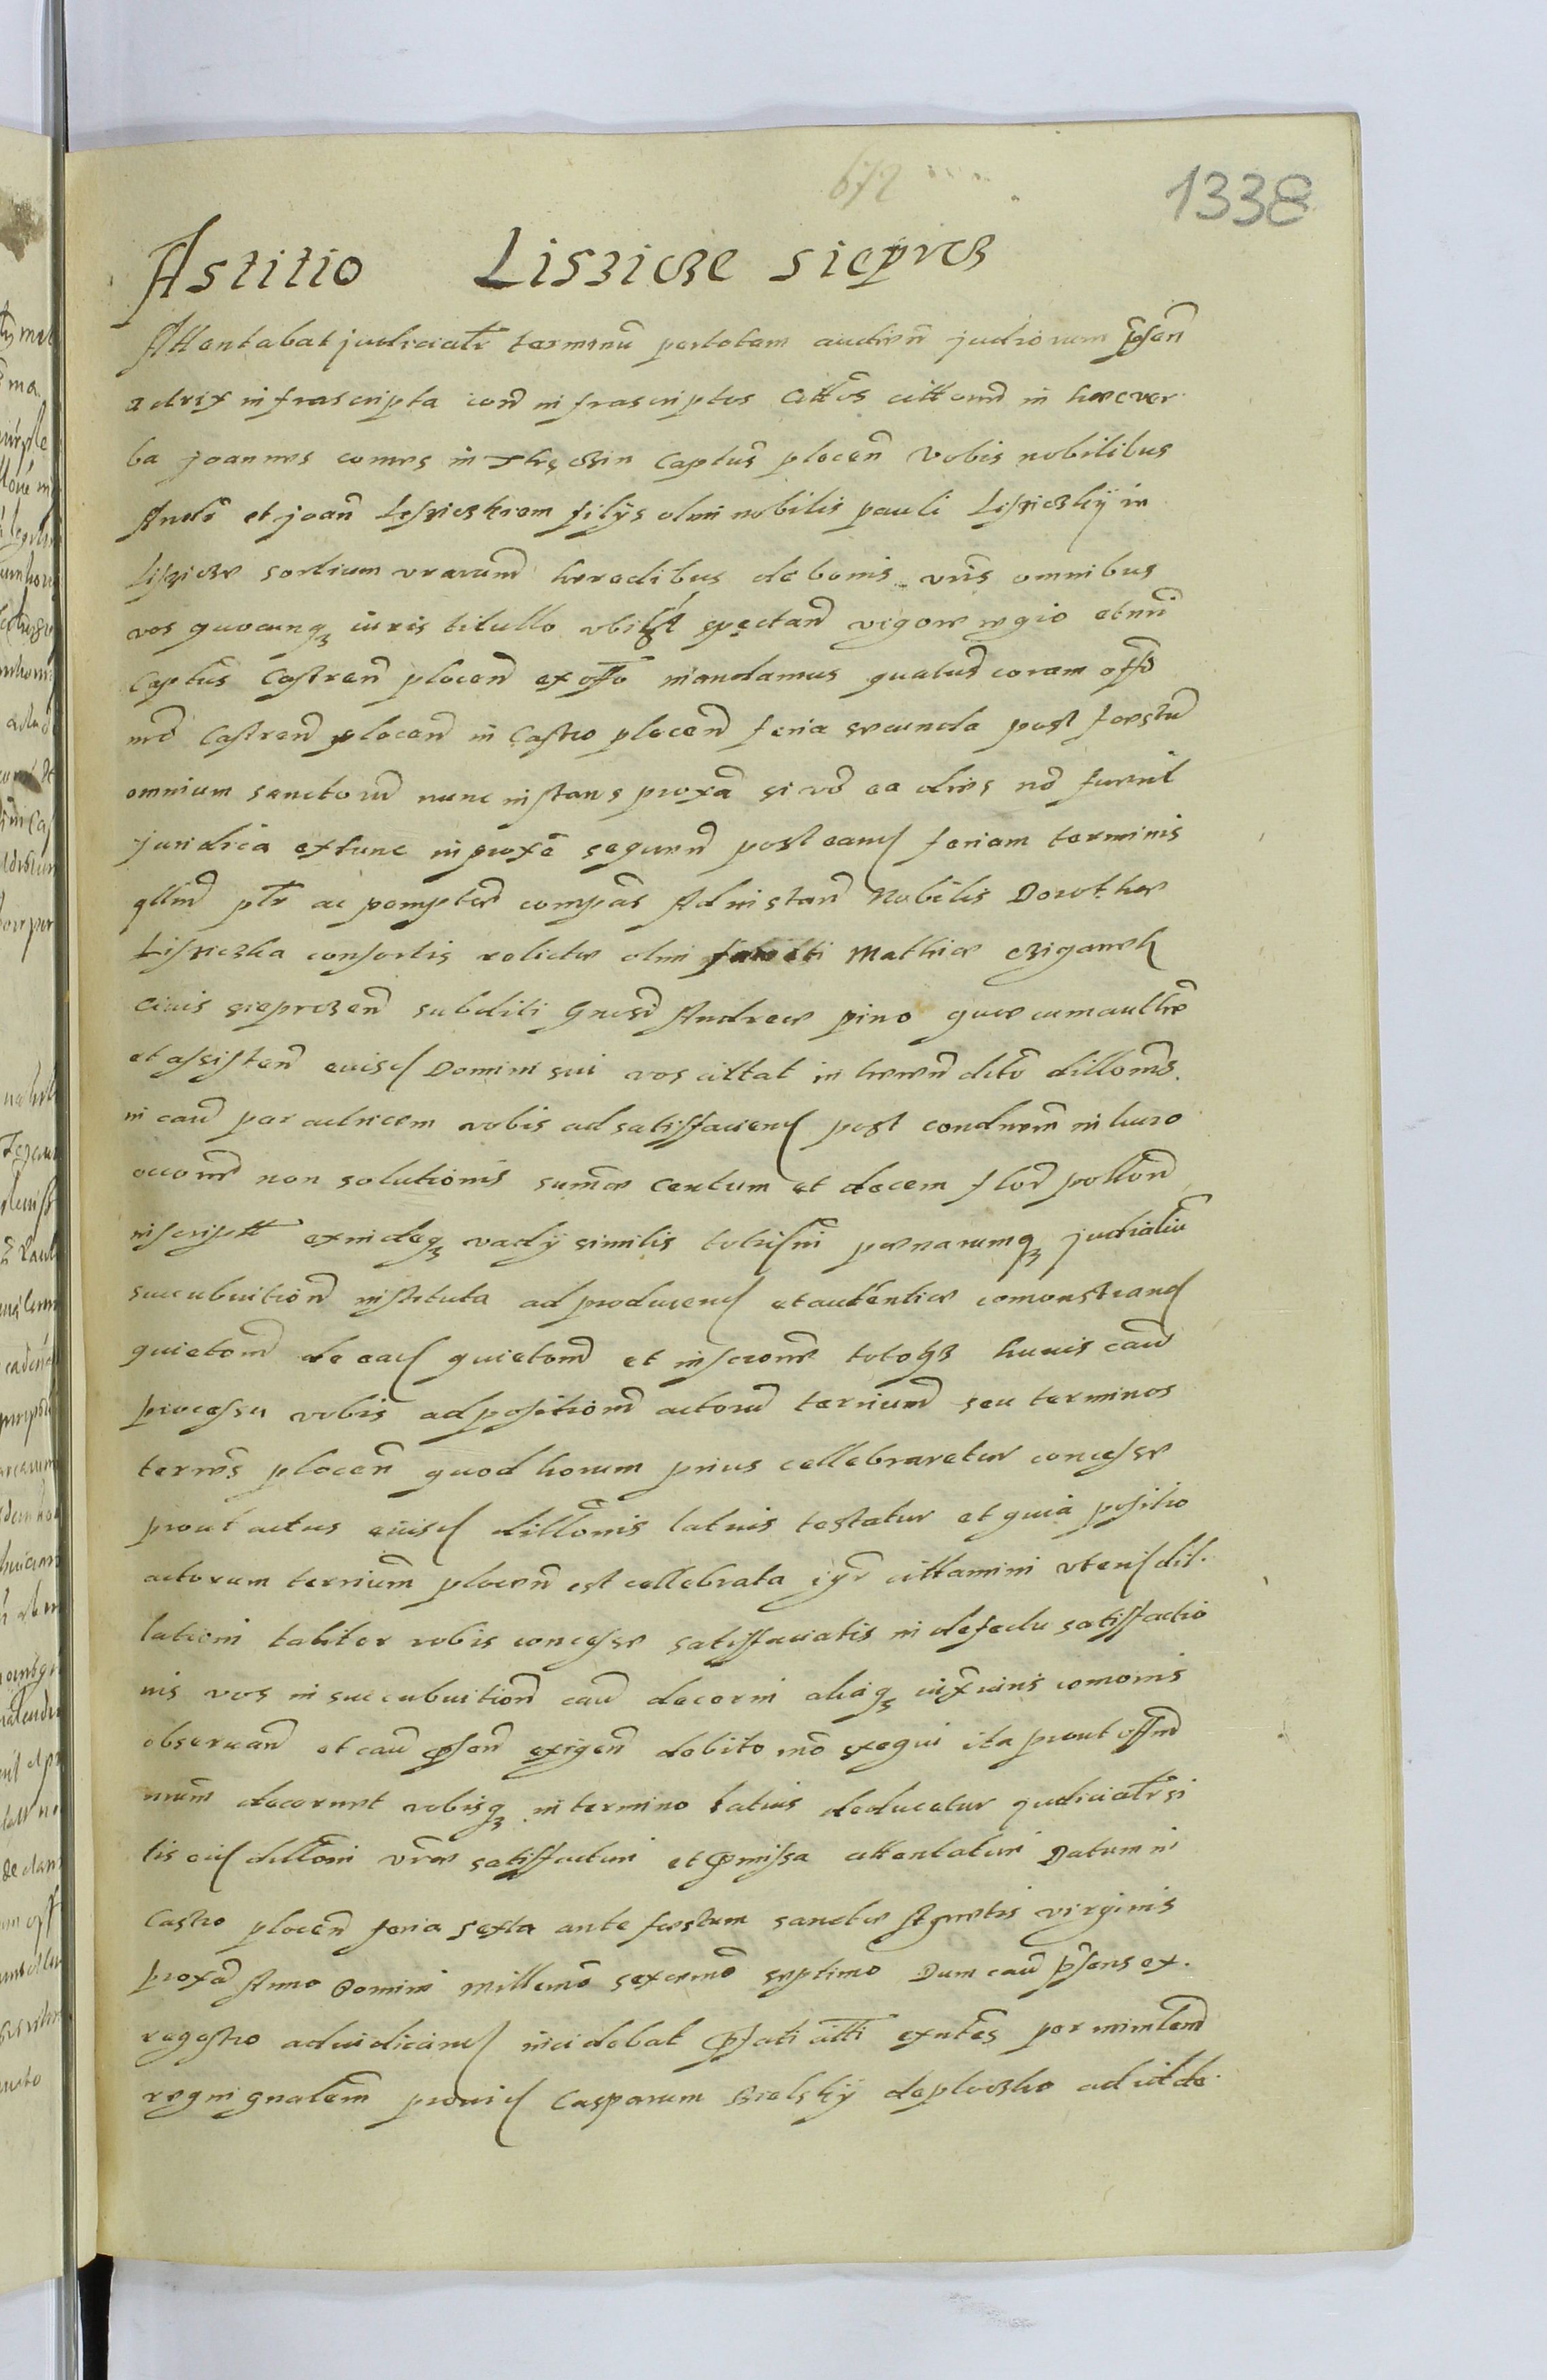 672
1338
Astitio Liszicze sieprcz
Attentabat judicialr terminũ pertotam audien judiciorum psen
actrix infrascripta con infrascriptos Cittos citt in haec ver
ba Joannes comes in Capteus plocen vobis nobilibus
Andr et Joan filijs olim nobilis pauli Lisziczkÿ in
Liszicze sortium vrarum heredibus de bonis vris omnibus
vos quocunqz iuris titullo vbilibet spectan vigore regio et nri
Capteus Castren plocen ex offo mandamus quatus coram offo
nro Castren plocen in Castro plocen feria secunda post festu
omnium sanctorũ nunc instans proxã si vo ea dies nõ fuerit
juridica extunc in proxe sequen post eand feriam terminis
qllm ptr ac compas Ad instan Nobilis Dorothee
Lisziczka consortis relictae olim Mathiae
civis sieprczen subditi Gnosi Andreae pino quae cum authe
et assisten euisd Domini sui vos cittat in dillonis
in cau per actricem vobis ad satisfaciend post condnem in lucro
non solutionis sumae Centum et decem flor pollon
inscript exindeqz vadÿ similis poenarumqz judialiũ
succubuition instituta ad producend et autentice comonstrand
quieton de ead quieton et inscrone totoqz huius cau
processu vobis ad position actorũ terrium seu terminos
terres plocen quod horum prius cellebraretur concesse
prout actus euisd dillonis latius testatur et quia positio
actorum terrium plocen est cellebrata cittamini vt eid dil
lationi taliter vobis concesse satisfaciatis in defectu satisfactio
nis vos in succubuition cau decerni aliaqz iux iuris comonis
obseruan et cau psen exigen debito mo exequi ita prout offm
nrum decernet vobisqz in termino latius deducetur judicialr si
tis eid dilloni vrae satisfacturi et pmissa attentaturi Datum in
Castro plocen feria sexta ante festum sanctae Agnetis virginis
proxã Anno Domini Millemo sexcmo septimo Dum cau psens ex
regestro adiudicand incidebat pfati citti exntes per mintem
regni gnalem prouid Casparum Bielskÿ de ad